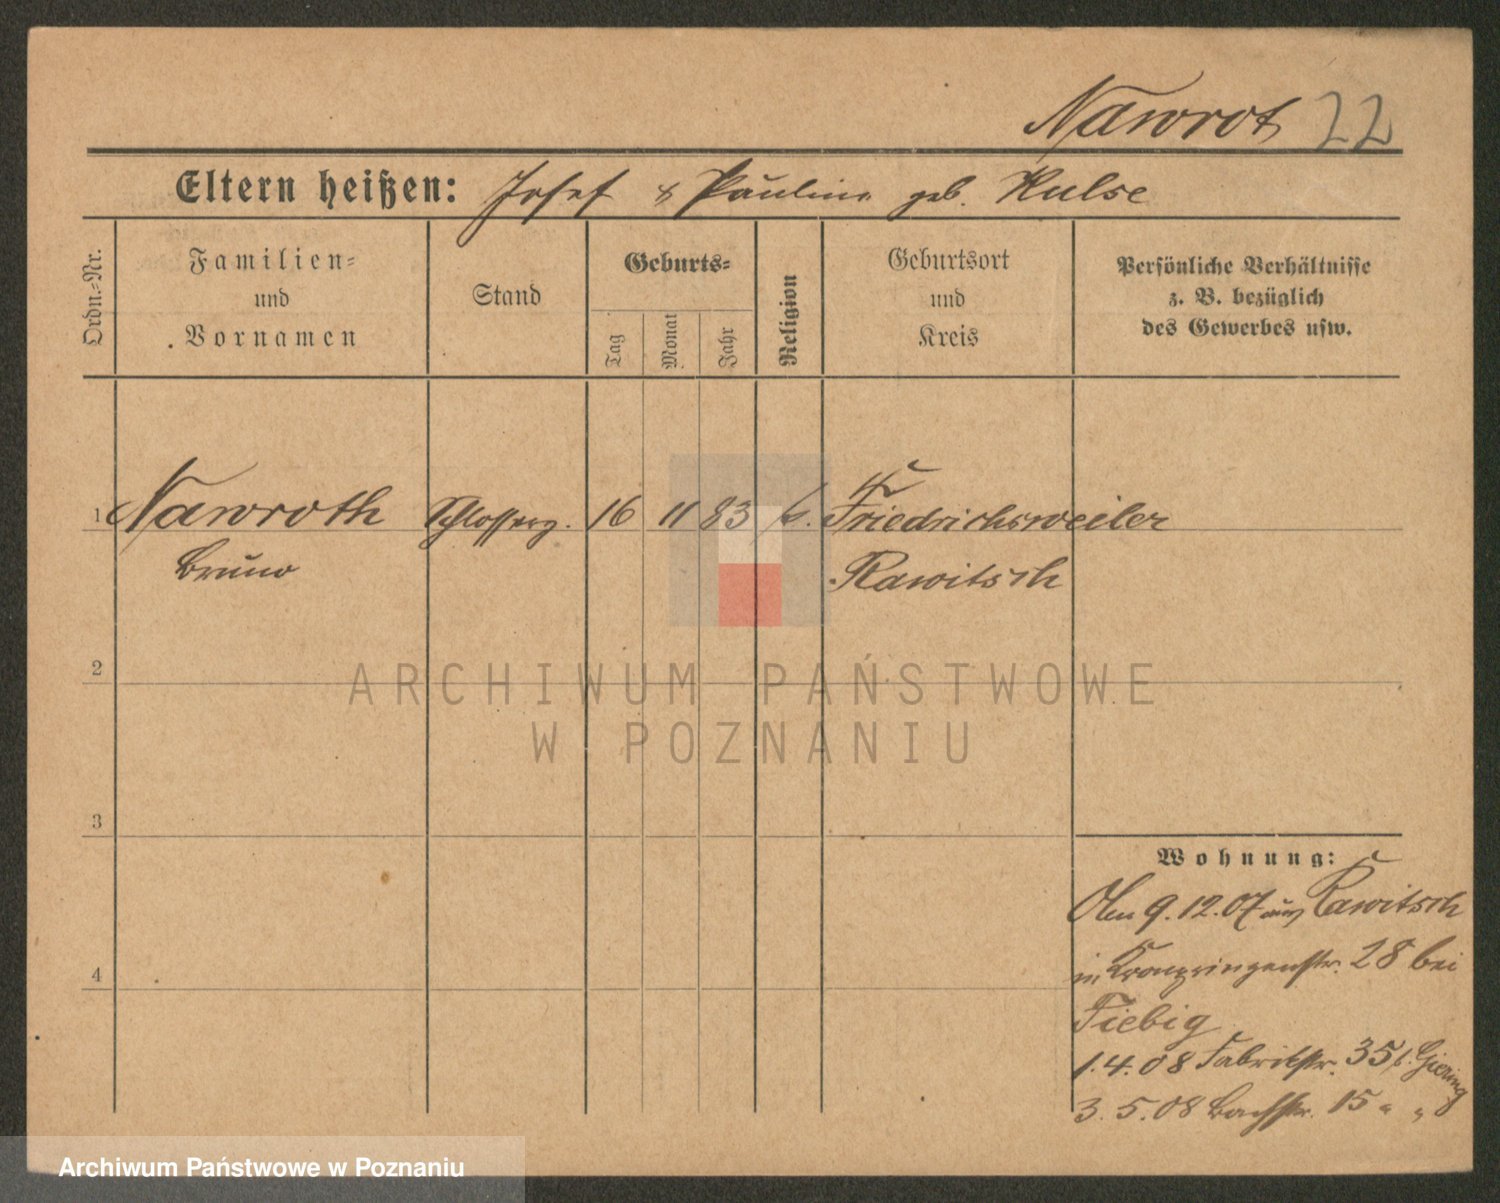 Nawrot 22
Eltern heißen: Josef & Pauline geb. Hulse
Ordn.-Nr.
Familien-
und
Vornamen
Stand
Geburts-
Tag
Monat
Jahr
Religion
Geburtsort
und
Kreis
Persönliche Verhältnisse
z. B. bezüglich
des Gewerbes usw.
1 Nawroth Schlosserg. 16 11 83 k. Friedrichsweiler
Bruno Rawitsch
2
3
4
ARCHIWUM PAŃSTWOWE
W POZNANIU
Wohnung:
Am 9.12.07 aus Rawitsch
in Kronprinzenstr. 28 bei
Fiebig
1.4.08 Fabrikstr. 35 b. Giering
3.5.08 Bachstr. 15 " "
Archiwum Państwowe w Poznaniu